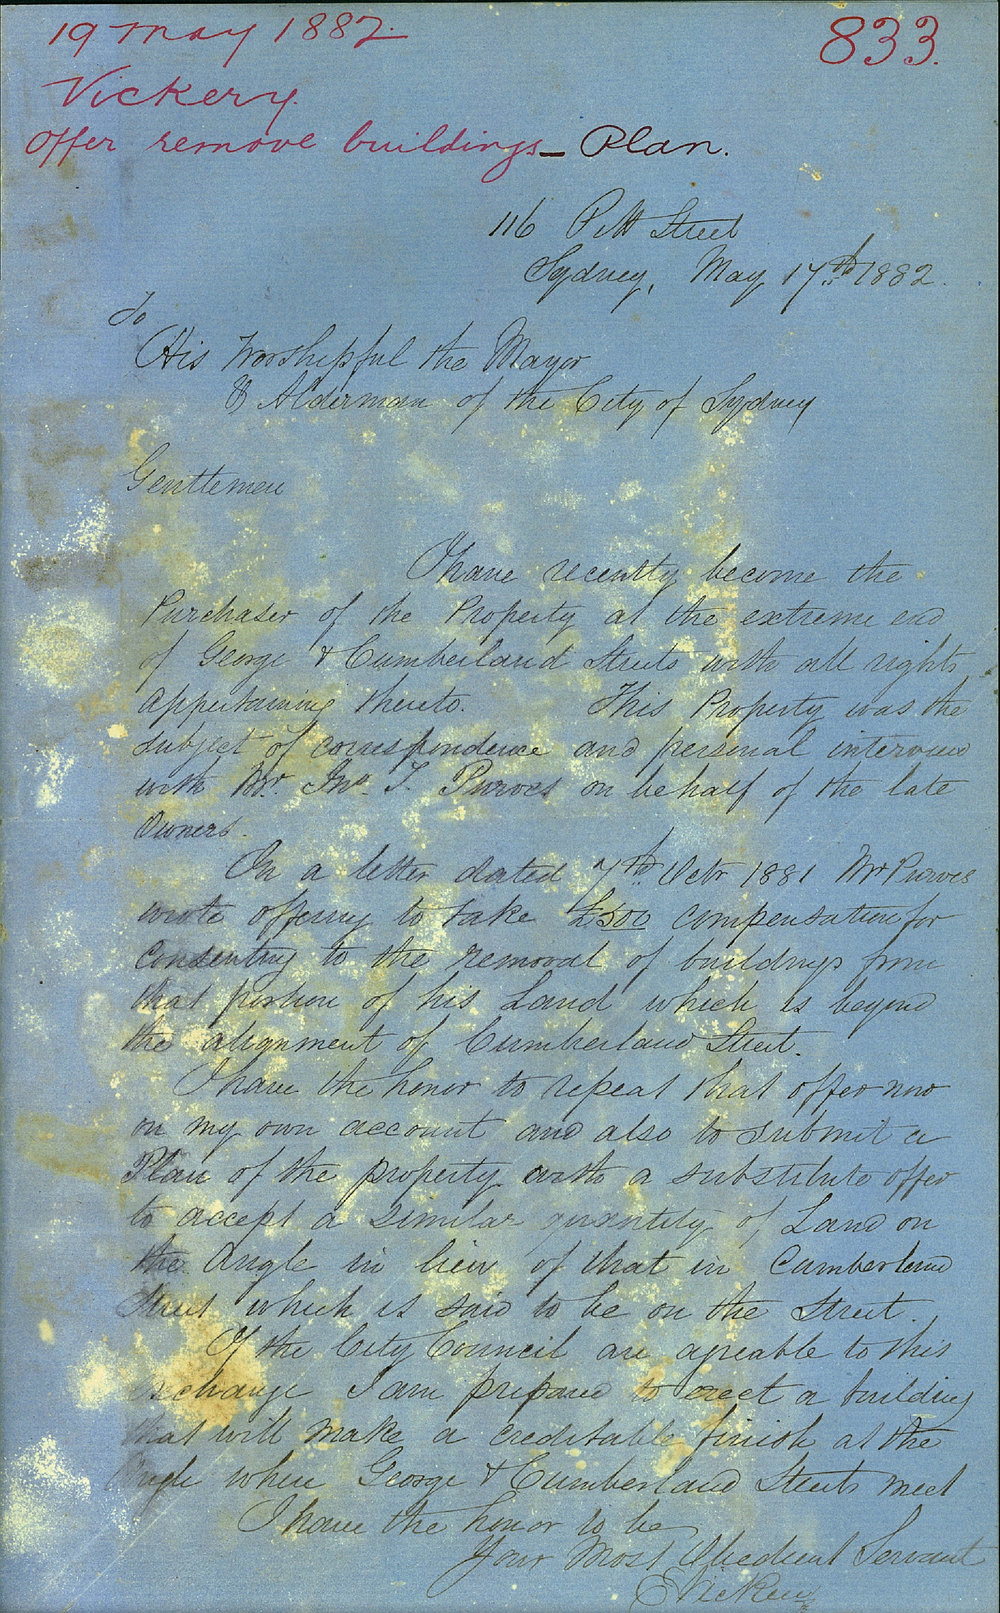 19 May 1882.
833.
Vickery.
Offer remove buildings_ Plan.
116 Pitt Street
Sydney, May 17th. 1882.
To
His Worshipful the Mayor
& Alderman of the City of Sydney
Gentlemen
I have recently become the
Purchaser of the Property at the extreme end
of George & Cumberland Streets with all rights
appertaining thereto. This Property was the
subject of correspondence and personal interview
with Mr. Jno. T. Purves on behalf of the late
Owners.
In a letter dated 7th Octr 1881 Mr Purves
wrote offering to take £500 compensation for
consenting to the removal of buildings from
that portion of his Land which is beyond
the alignment of Cumberland Street.
I have the honor to repeat that offer now
on my own account and also to submit a
Plan of the property with a substitute offer
to accept a similar quantity of Land on
the Angle in lieu of that in Cumberland
Street which is said to be on the Street.
If the City Council are agreable to this
exchange I am prepared to erect a building
that will make a creditable finish at the
Angle where George & Cumberland Streets meet
I have the honor to be
Your Most Obedient Servant
E Vickery